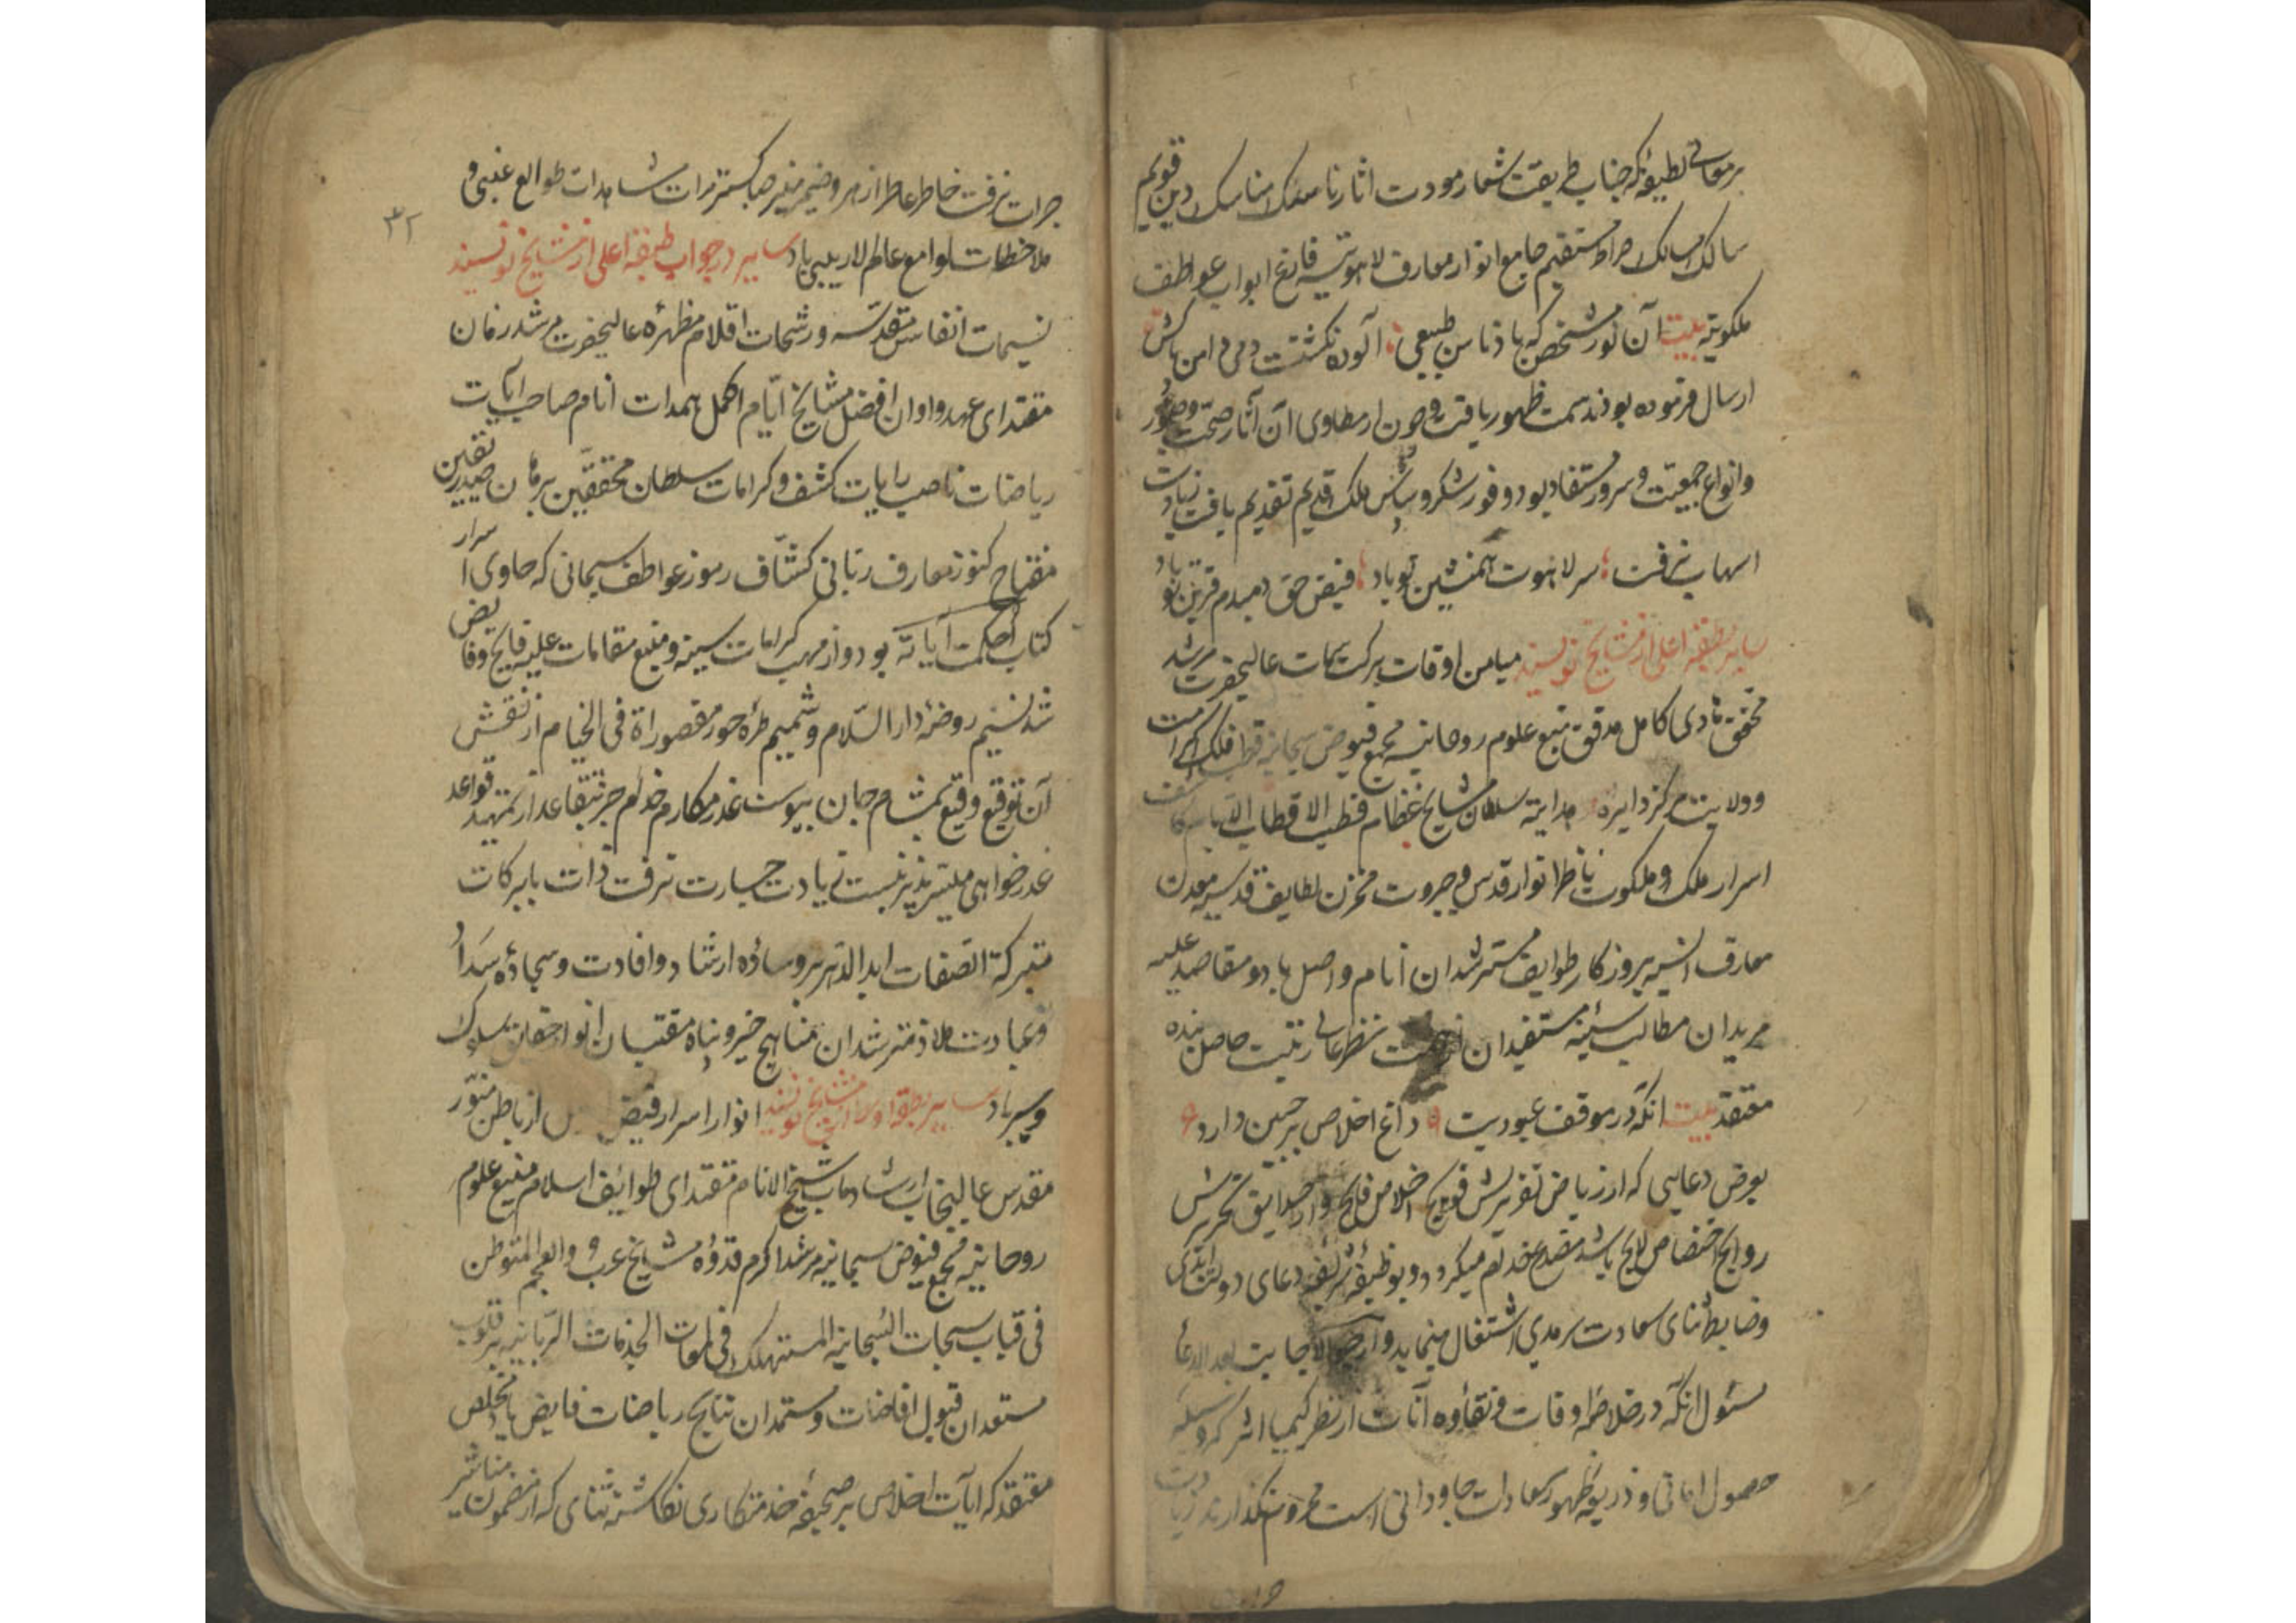 بر معانی لطیفه که جناب طریقت شعار مودت آثار ناسک مناسک دین قویم
سالک مسالک صراط مستقیم جامع انوار معارف لاهوتیه فارغ ابواب عواطف
ملکوتیه بیت آن نور مشخص که بادناس طبیعی آلوده نکشتت دمی دامن پاکش
ارسال فرموده بودند سمت ظهور یافت و چون از مطاوی آن آثار صحت و حضور
وانواع جمعیت و سرور مستفاد بود وفور شکر و سپاس ملک قدیم تقدیم یافت زیادت
اسهاب نرفت سر لاهوت همنشین تو باد فیض حق دمبدم قرین تو باد
سایر بطبقه اعلی از مشایخ نویسند میامن اوقات برکت سمات عالیحضرت مرشد
محقق هادی کامل مدقق منبع علوم روحانیه مجمع فیوض سبحانیه قطب فلک کرامت
وولایت مرکز دایره هدایة سلطان مشایخ عظام قطب الاقطاب کاشف
اسرار ملک و ملکوت ناظر انوار قدس و جبروت مخزن لطایف قدسیه معدن
معارف انسیه بروزکار طوایف مسترشدان انام واصل باد و مقاصد علیه
مریدان مطالب سنیه مستفیدان نظر عالی رتبت حاصل بنده
معتقد بیت آنکه در موقف عبودیت داغ اخلاص بر جبین دارد
بعرض دعایی که از ریاض تقریرش فوایح اخلاص فایح و از حدایق تحریرش
روایح اختصاص لایح باشد مصدع خدام میکردد و بوظیفه شریفه دعای دولت ابدی
وضابطه ثنای سعادت سرمدی اشتغال مینماید وارجو الاجابت بعد الدعا
مسئول آنکه در خلاصه اوقات و نقاوه آنات از نظر کیمیا اثر که وسیله
حصول امانی و ذریعه ظهور سعادات جاودانی است محروم نکذارند زیادت
۳۲
جرات نرفت خاطر عاطر ازهر و ضمیر منیر صبا کستر مرآت مشاهدات طوالع غیبی و
ملاحظات لوامع عالم لاریبی باد سایر در جواب طبقه اعلی از مشایخ نویسند
نسیمات انفاس مقدسه و رشحات اقلام مطهره عالیحضرت مرشد زمان
مقتدای عهد و اوان افضل مشایخ ایام اکمل همدات انام صاحب آیات
ریاضات ناصب رایات کشف و کرامات سلطان محققین برهان صدیقین
مفتاح کنوز معارف ربانی کشاف رموز عواطف سبحانی که حاوی اسرار
کتاب احکمت آیاته بود و از مهب کرامات سنیه و منبع مقامات علیه فایح و فایض
شد نسیم روضه دار السلام و شمیم طره حور مقصوراة فی الخیام از نقش
آن توقیع وقیع بمشام جان پیوست عذر مکارم خدام جز بتقاعد از تمهید قواعد
عذرخواهی میسر پذیر نیست زیادت جسارت نرفت ذات بابرکات
متبرکة الصفات ابد الدهر بر وساده ارشاد و افادت و سجاده سداد
وعبادت ملاذ مسترشدان مناهج خیر و پناه مقتبسان انوار سلوک
وسیر باد سایر بطبقه اوسط از مشایخ نویسند انوار اسرار فیض از باطن منور
مقدس عالیجناب ارشادماب شیخ الانام مقتدای طوائف اسلام منبع علوم
روحانیه مجمع فیوض سبحانیه مرشد اکرم قدوه مشایخ عرب و العجم المتوطن
فی قباب سبحات السبحانیه المستهلک فی لمعات الجذبات الربانیه بر قلوب
مستعدان قبول افاضات و مستمدان نتایج ریاضات فایض باد مخلص
معتقد که آیات اخلاص بر صحیفه خدمتکاری نکاشته ثنای که از مضمون مناشیر